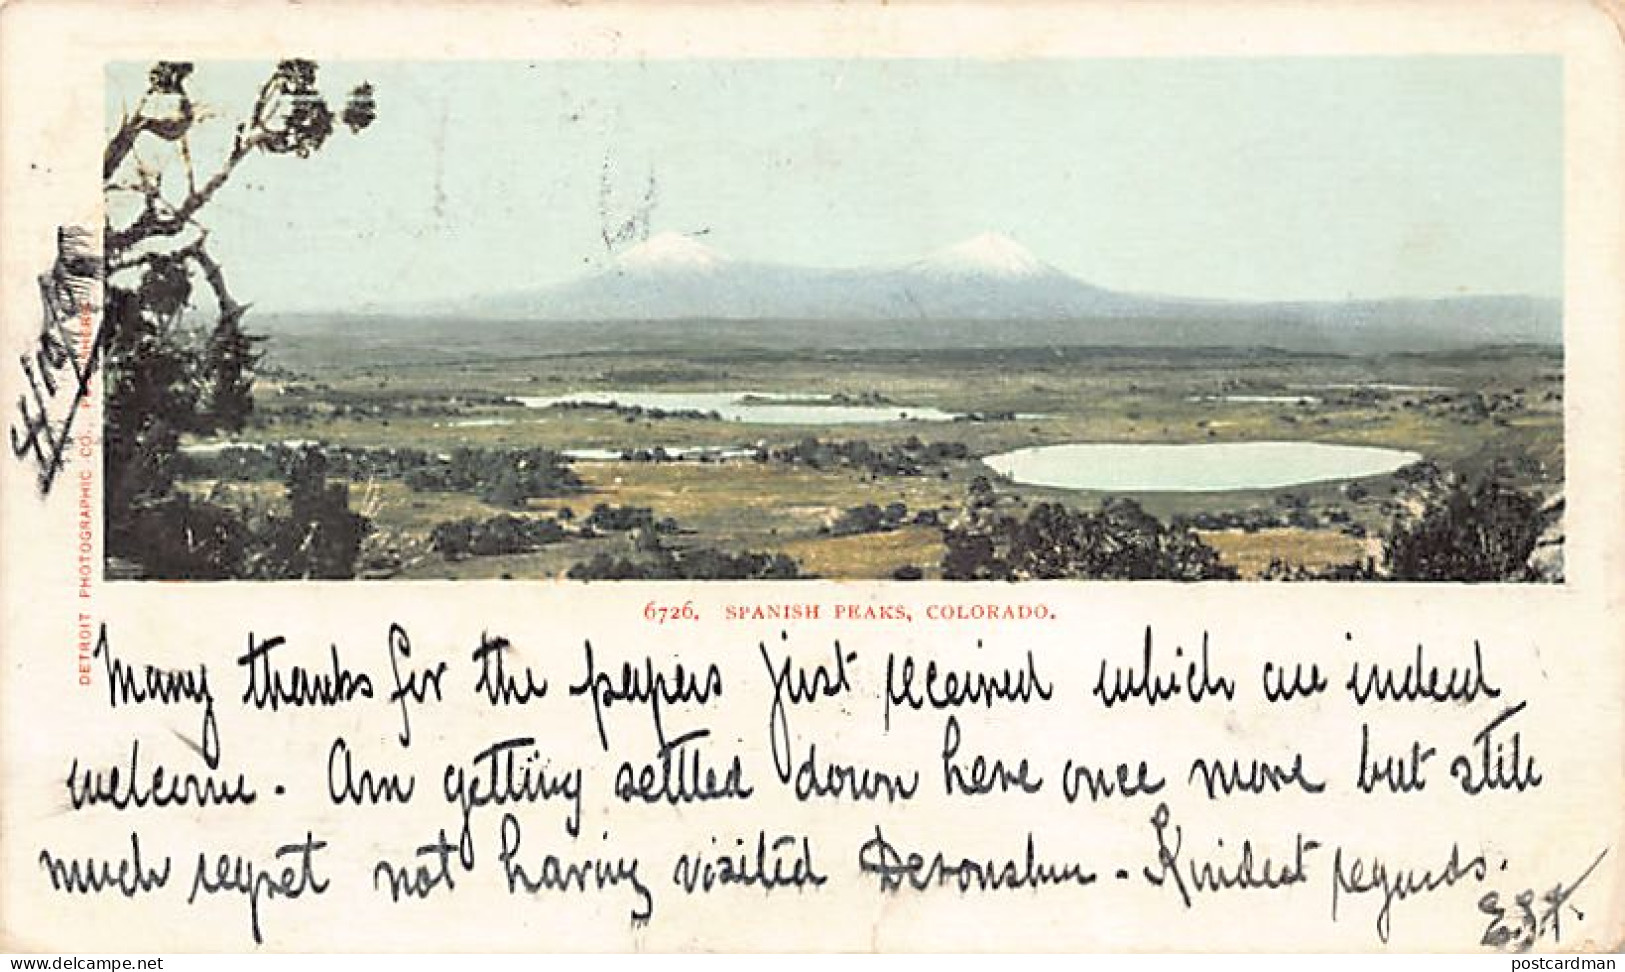 DETROIT PHOTOGRAPHIC CO., PUBLISHERS.
6726. SPANISH PEAKS, COLORADO.
Many thanks for the papers just received which are indeed
welcome. Am getting settled down here once more but still
much regret not having visited Devonshire - Kindest regards.
www.delcampe.net
postcardman